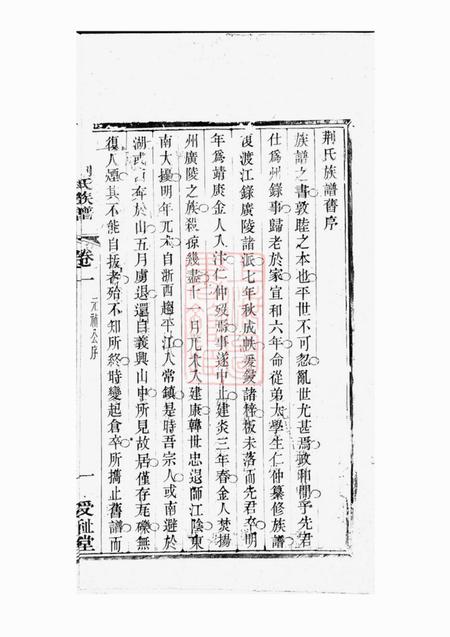 荆氏族譜舊序
族譜之書敦睦之本也平世不可忽亂世尤甚焉政和間予先君
仕爲州錄事歸老於家宣和六年命從弟太學生仁仲纂修族譜
復渡江錄廣陵諸派七年秋成帙爰鋟諸梓板未落而先君卒明
年爲靖康金人入汴仁仲歿焉事遂中止建炎三年春金人焚揚
州廣陵之族殺掠幾盡十一月兀朮入建康韓世忠退師江陰東
南大擾明年兀朮自浙西趨平江入常鎮是時吾宗人或南避於
湖或西奔於山五月虜退還自義興山中所見故居僅存瓦礫無
復人煙其不能自拔者殆不知所終時變起倉卒所攜止舊譜而
荆氏族譜
卷一
元祐公序
一
受祉堂